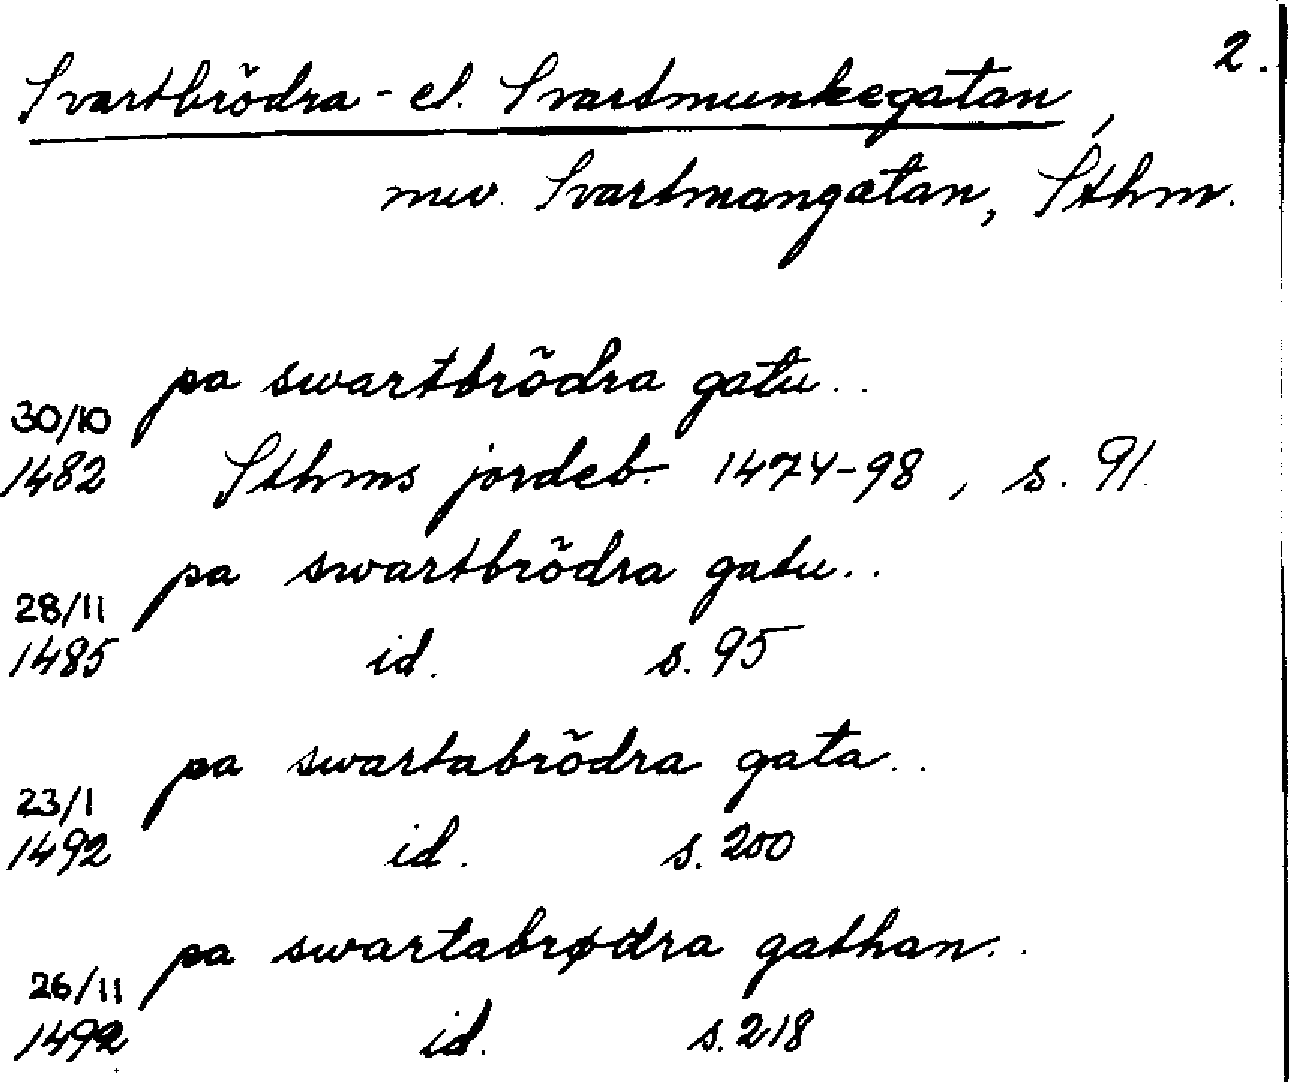 2.
Svartbrödra- el. Svartmunkegatan,
nuv. Svartmangatan, Sthm.
pa swartbrödra gatu..
30/10
1482 Sthms jordeb. 1474-98, s. 91.
pa swartbrödra gatu..
28/11
1485 id. s. 95
pa swartabrödra gata..
23/1
1492 id. s. 200
pa swartabrødra gathan..
26/11
1492 id. s. 218